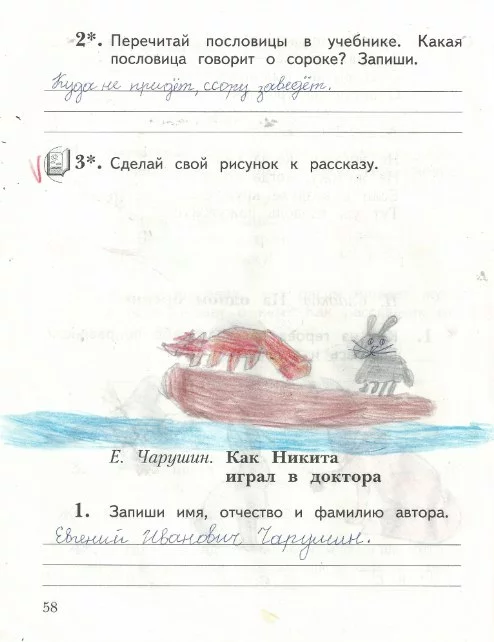 2*. Перечитай пословицы в учебнике. Какая
пословица говорит о сороке? Запиши.
Куда не придёт, ссору заведёт.
3*. Сделай свой рисунок к рассказу.
Е. Чарушин. Как Никита
играл в доктора
1. Запиши имя, отчество и фамилию автора.
Евгений Иванович Чарушин.
58